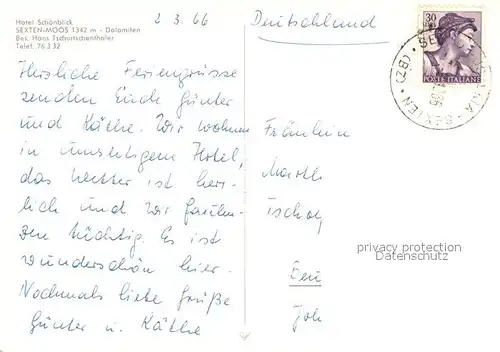 Hotel Schönblick
SEXTEN-MOOS 1342 m - Dolomiten
Bes. Hans Tschurtschenthaler
Telef. 76 3 32
2 3. 66
Deutschland
30
POSTE ITALIANE
SEXTEN (BZ)
Herzliche Feriengrüsse
senden Euch Günter
und Käthe. Wir wohnen
in umseitigem Hotel,
das Wetter ist herr-
lich und wir faulen-
zen tüchtig. Es ist
wunderschön hier.
Nochmals liebe Grüße
Günter u. Käthe
Fräulein
privacy protection
Datenschutz